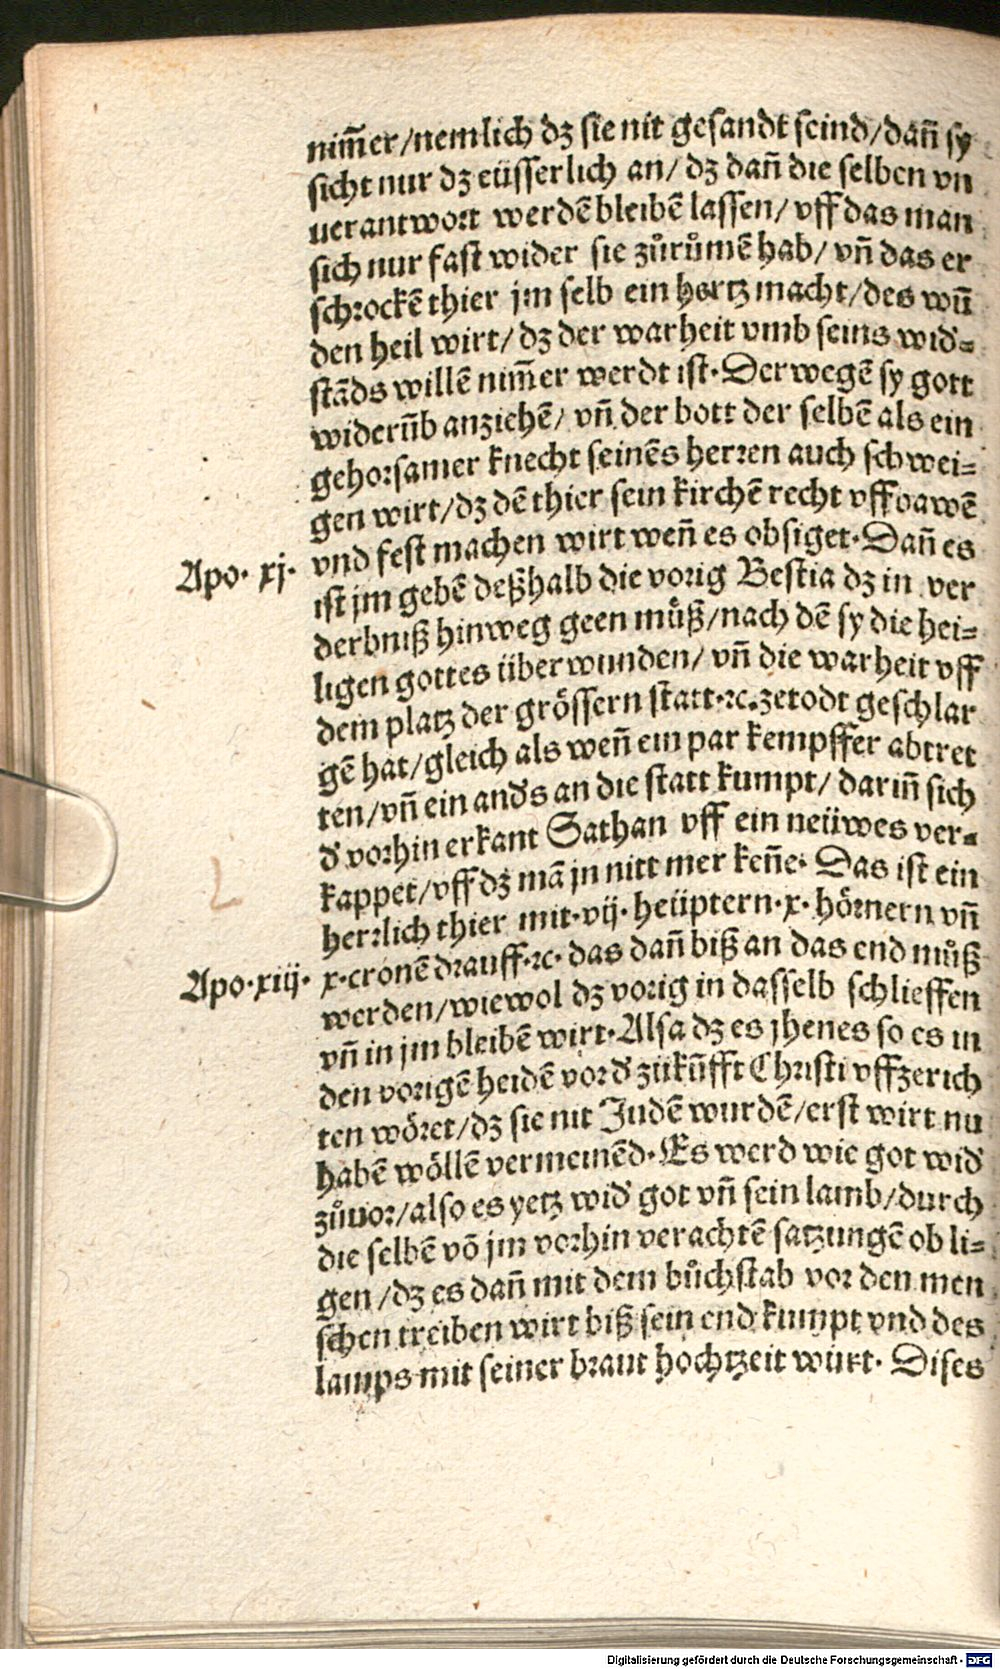 nim̃er/nemlich dz sie nit gesandt seind/dañ sy
sicht nur dz eüsserlich an/ dz dañ die selben vn
uerantwort werdē bleibē lassen/ vff das man
sich nur fast wider sie zůrůmē hab/ vñ das er
schrockē thier jm selb ein hertz macht/des wũ
den heil wirt/ dz der warheit vmb seins wid=
stāds willē nim̃er werdt ist. Der wegē sy gott
widerũb anziehē/ vñ der bott der selbē als ein
gehorsamer knecht seinēs herren auch schwei=
gen wirt/dz dē thier sein kirchē recht vffbawē
Apo. xj. vnd fest machen wirt weñ es obsiget. Dañ es
ist jm gebē deßhalb die vorig Bestia dz in ver
derbniß hinweg geen můß/nach dē sy die hei=
ligen gottes überwunden/ vñ die warheit vff
dem platz der grössern statt.ꝛc. zetodt geschlar
gē hat/gleich als weñ ein par kempffer abtret
ten/vñ ein and's an die statt kumpt/ dariñ sich
d' vorhin erkant Sathan vff ein neüwes ver=
kappet/vff dz mā jn nitt mer keñe. Das ist ein
herrlich thier mit.vij. heüptern.x. hörnern vñ
Apo.xiij. x.cronē drauff.ꝛc. das dañ biß an das end můß
werden/wiewol dz vorig in dasselb schlieffen
vñ in jm bleibē wirt. Alsa dz es jhenes so es in
den vorigē heidē vor d' zůkũfft Christi vffzerich
ten wöret/dz sie nit Judē wurdē/erst wirt nu
habē wöllē vermeinēd. Es werd wie got wid'
zůuor/also es yetz wid' got vñ sein lamb/durch
die selbē vō jm vorhin verachtē satzungē ob li=
gen/dz es dañ mit dem bůchstab vor den men
schen treiben wirt biß sein end kumpt vnd des
lamps mit seiner braut hochtzeit würt. Dises
Digitalisierung gefördert durch die Deutsche Forschungsgemeinschaft - DFG